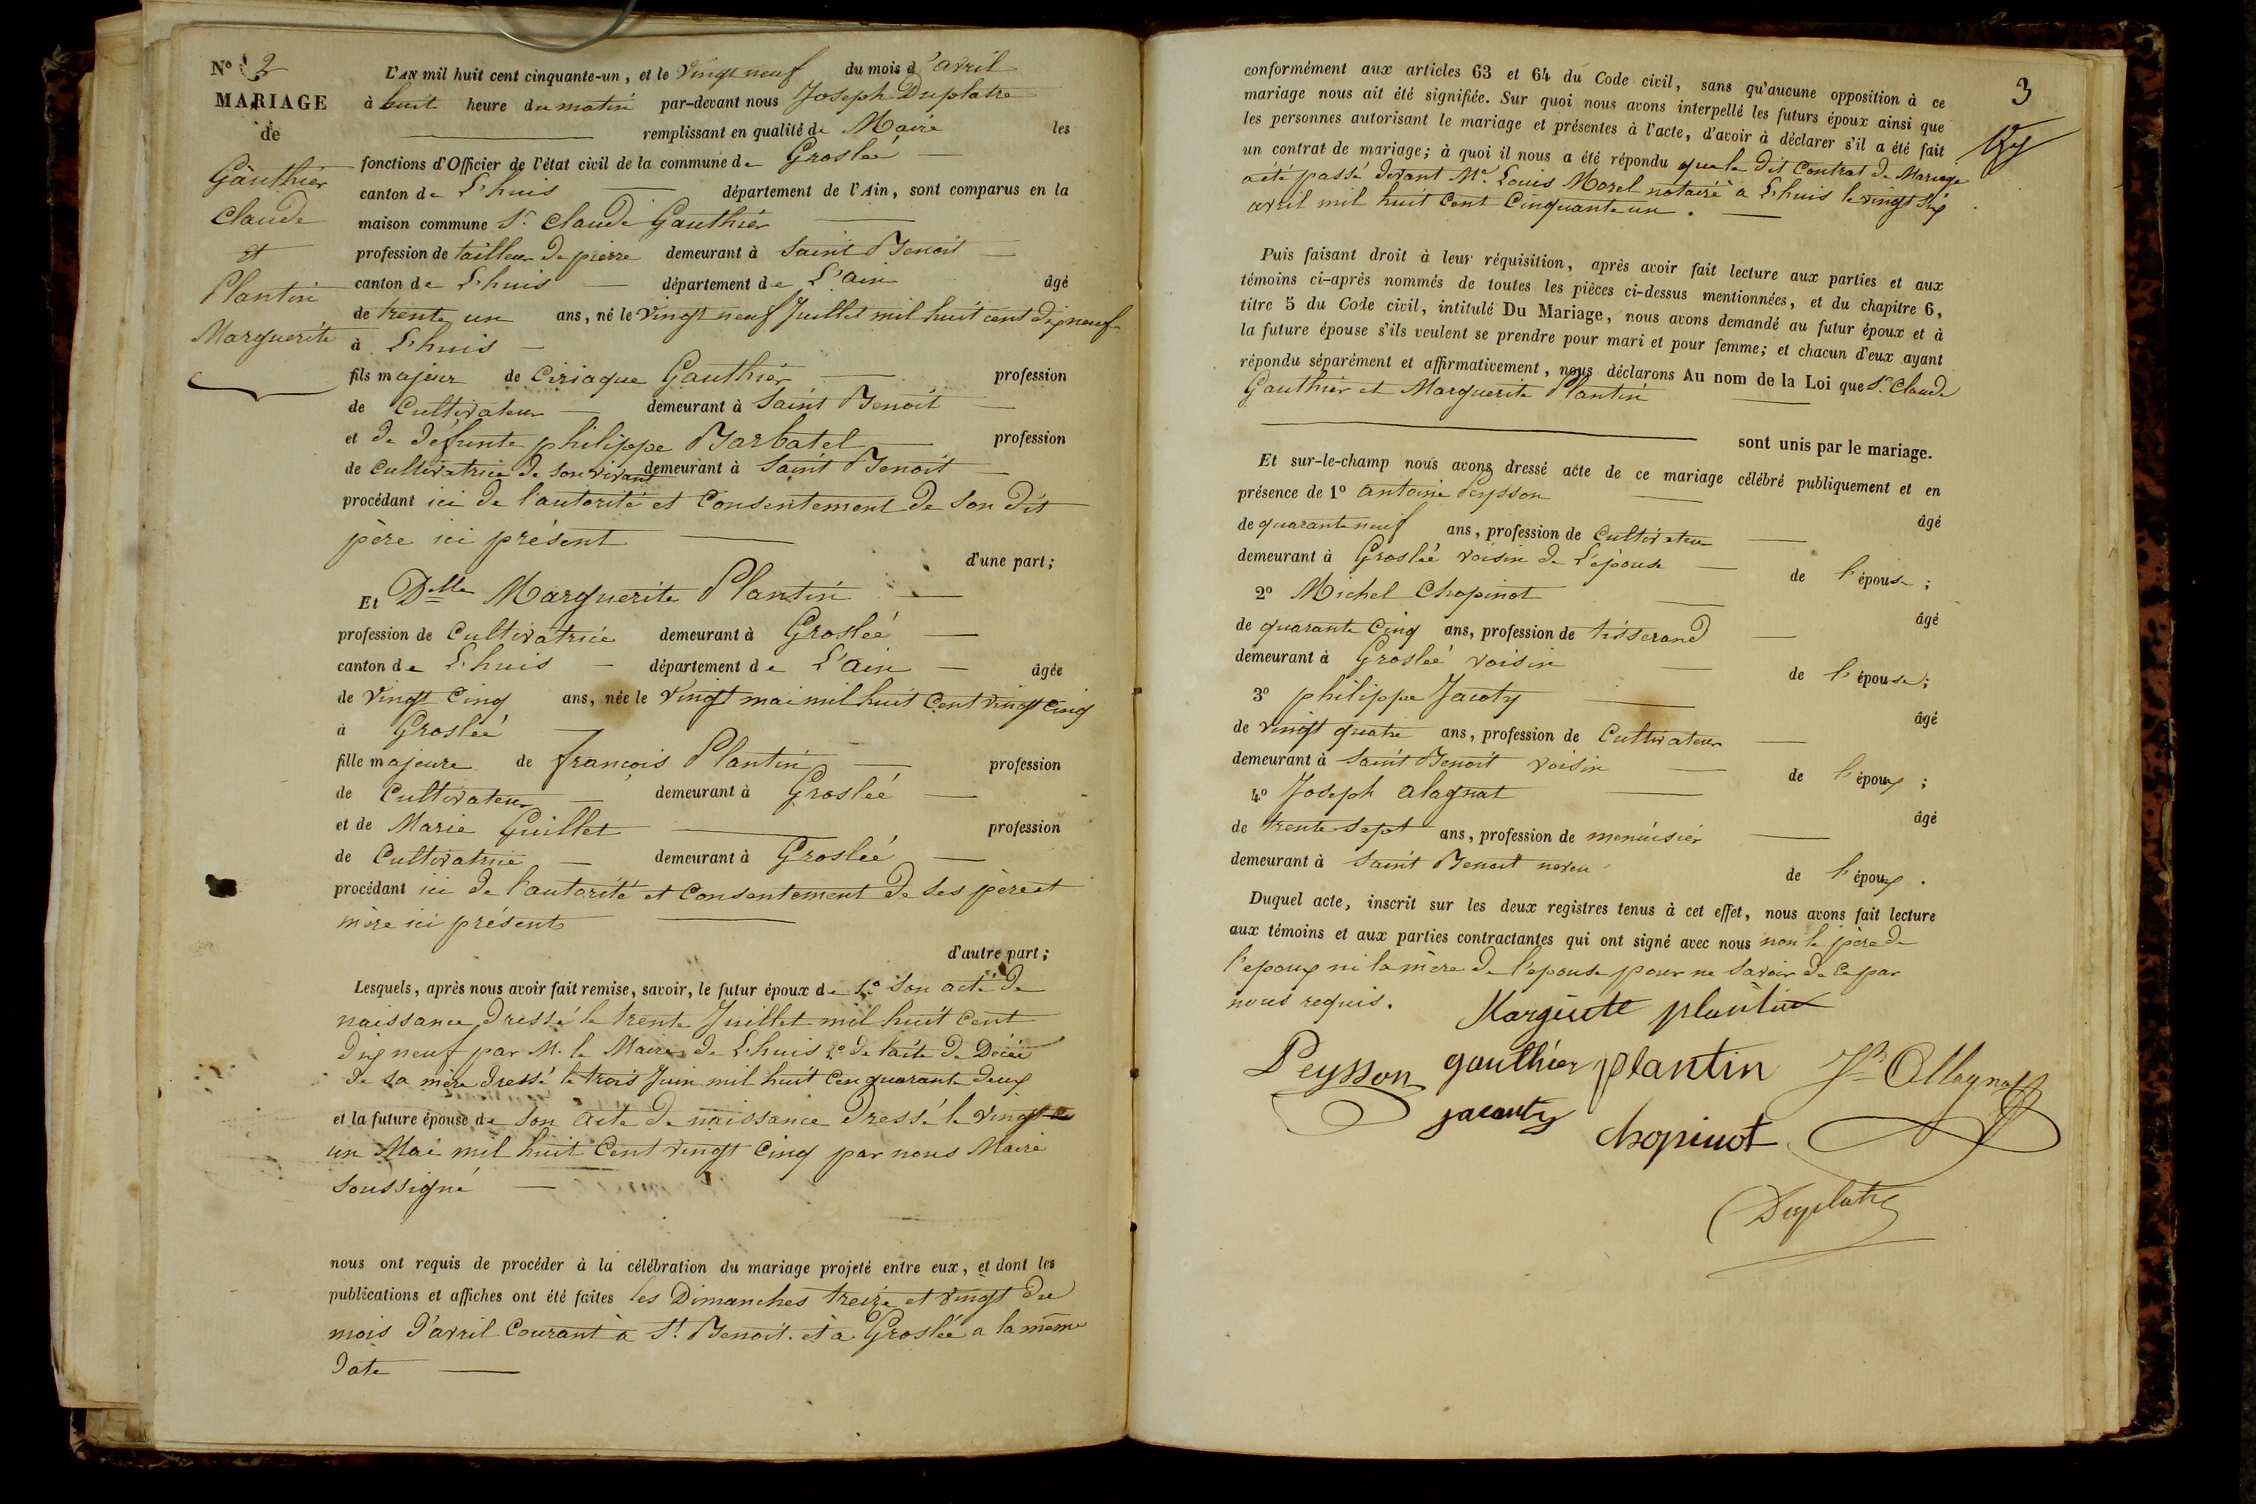 N° 2
MARIAGE
de
Gauthier
Claude
et
Plantin
Marguerite
L'AN mil huit cent cinquante-un, et le vingt neuf du mois d'avril
à huit heure du matin par-devant nous Joseph Duplatre
remplissant en qualité de Maire les
fonctions d'Officier de l'état civil de la commune de Groslée
canton de L'huis département de l'Ain, sont comparus en la
maison commune Sr Claude Gauthier
profession de tailleur de pierre demeurant à Saint Benoit
canton de L'huis département de L'ain âgé
de trente un ans, né le vingt neuf Juillet mil huit cent dix neuf
à L'huis
fils majeur de Ciriaque Gauthier profession
de Cultivateur demeurant à Saint Benoit
et de défunte philippe Barbatel profession
de cultivatrice de son vivant demeurant à Saint Benoit
procédant ici de l'autorité et consentement de son dit
père ici présent
d'une part;
Et Delle Marguerite Plantin
profession de Cultivatrice demeurant à Groslée
canton de L'huis département de L'ain âgée
de vingt cinq ans, née le vingt mai mil huit cent vingt cinq
à Groslée
fille majeure de françois Plantin profession
de Cultivateur demeurant à Groslée
et de Marie Guillet profession
de Cultivatrice demeurant à Groslée
procédant ici de l'autorité et consentement de ses père et
mère ici présents
d'autre part;
Lesquels, après nous avoir fait remise, savoir, le futur époux de 1° son acte de
naissance dressé le trente Juillet mil huit cent
dix neuf par M. le Maire de L'huis 2° de l'acte de Décès
de sa mère dressé le trois Juin mil huit cen quarante deux
et la future épouse de son acte de naissance dressé le vingt
un Mai mil huit cent vingt cinq par nous Maire
soussigné
nous ont requis de procéder à la célébration du mariage projeté entre eux, et dont les
publications et affiches ont été faites les Dimanches treize et vingt du
mois d'avril courant à St Benoit et à Groslée a la même
date
3
conformément aux articles 63 et 64 du Code civil, sans qu'aucune opposition à ce
mariage nous ait été signifiée. Sur quoi nous avons interpellé les futurs époux ainsi que
les personnes autorisant le mariage et présentes à l'acte, d'avoir à déclarer s'il a été fait
un contrat de mariage; à quoi il nous a été répondu que le dit Contrat de Mariage
a été passé devant Me Louis Morel notaire à L'huis le vingt six
avril mil huit cent cinquante un.
Puis faisant droit à leur réquisition, après avoir fait lecture aux parties et aux
témoins ci-après nommés de toutes les pièces ci-dessus mentionnées, et du chapitre 6,
titre 5 du Code civil, intitulé Du Mariage, nous avons demandé au futur époux et à
la future épouse s'ils veulent se prendre pour mari et pour femme; et chacun d'eux ayant
répondu séparément et affirmativement, nous déclarons Au nom de la Loi que Sr Claude
Gauthier et Marguerite Plantin
sont unis par le mariage.
Et sur-le-champ nous avons dressé acte de ce mariage célébré publiquement et en
présence de 1° antoine Peysson
âgé
de quarante neuf ans, profession de Cultivateur
demeurant à Groslée voisin de L'épouse de l'épouse;
2° Michel Chopinot
âgé
de quarante cinq ans, profession de tisserand
demeurant à Groslée voisin de l'épouse;
3° philippe Jacoty
âgé
de vingt quatre ans, profession de Cultivateur
demeurant à Saint Benoit voisin de l'époux;
4° Joseph alagnat
âgé
de trente sept ans, profession de menuisier
demeurant à Saint Benoit neveu de l'époux.
Duquel acte, inscrit sur les deux registres tenus à cet effet, nous avons fait lecture
aux témoins et aux parties contractantes qui ont signé avec nous non le père de
l'epoux ni la mère de l'epouse pour ne savoir de ce par
nous requis.
Margerite plantin
Peysson gauthier plantin Jh Allagnat
jacouty
chopinot
Duplatre